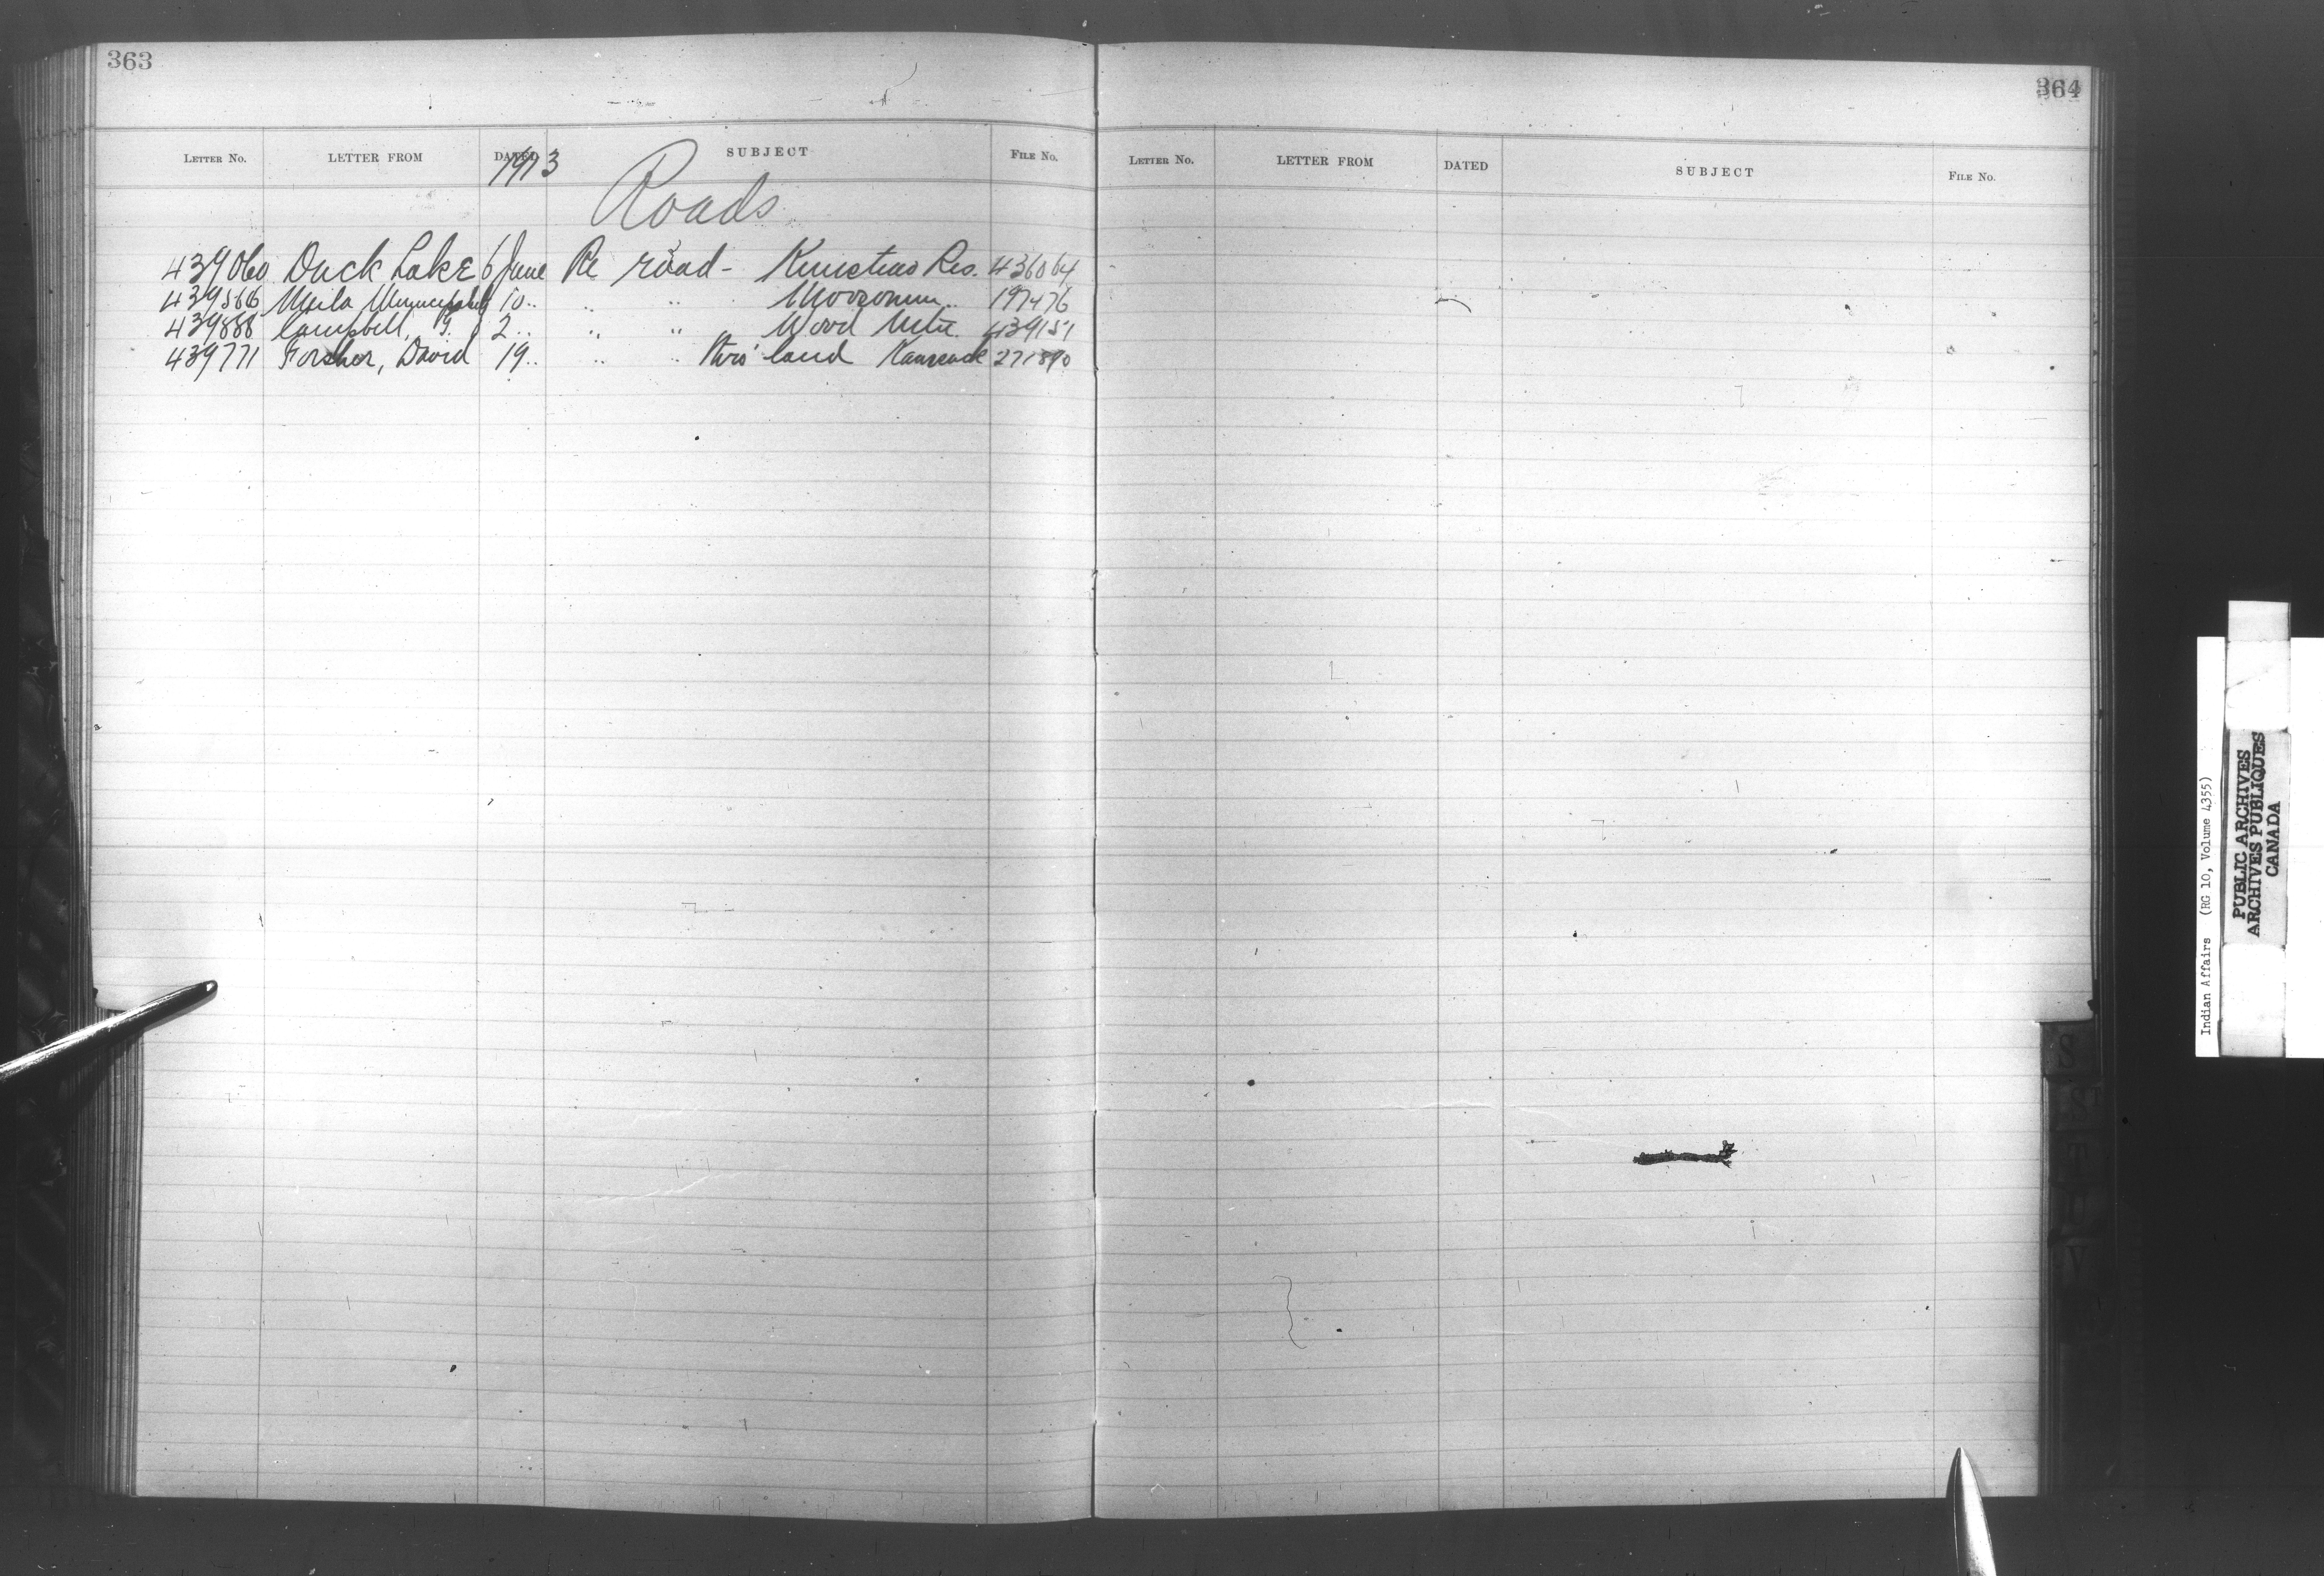 363
LETTER NO. LETTER FROM DATED SUBJECT FILE No.
1913
Roads
439060 Duck Lake 6 June Re road - Kinistino Res. 436064
439566 Meila Municipality 10 .. .. .. Moosomin .. 197476
439888 Campbell, G. 2 .. .. .. Wood 439151
439771 Forsher, David 19 .. .. .. thro' land 271890
364
LETTER No. LETTER FROM DATED SUBJECT FILE No.
S
T
U
V
Indian Affairs (RG 10, Volume 4355)
PUBLIC ARCHIVES
ARCHIVES PUBLIQUES
CANADA